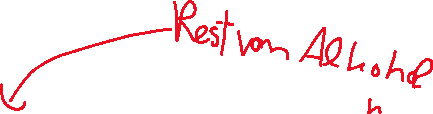 Rest vom Alkohol
n